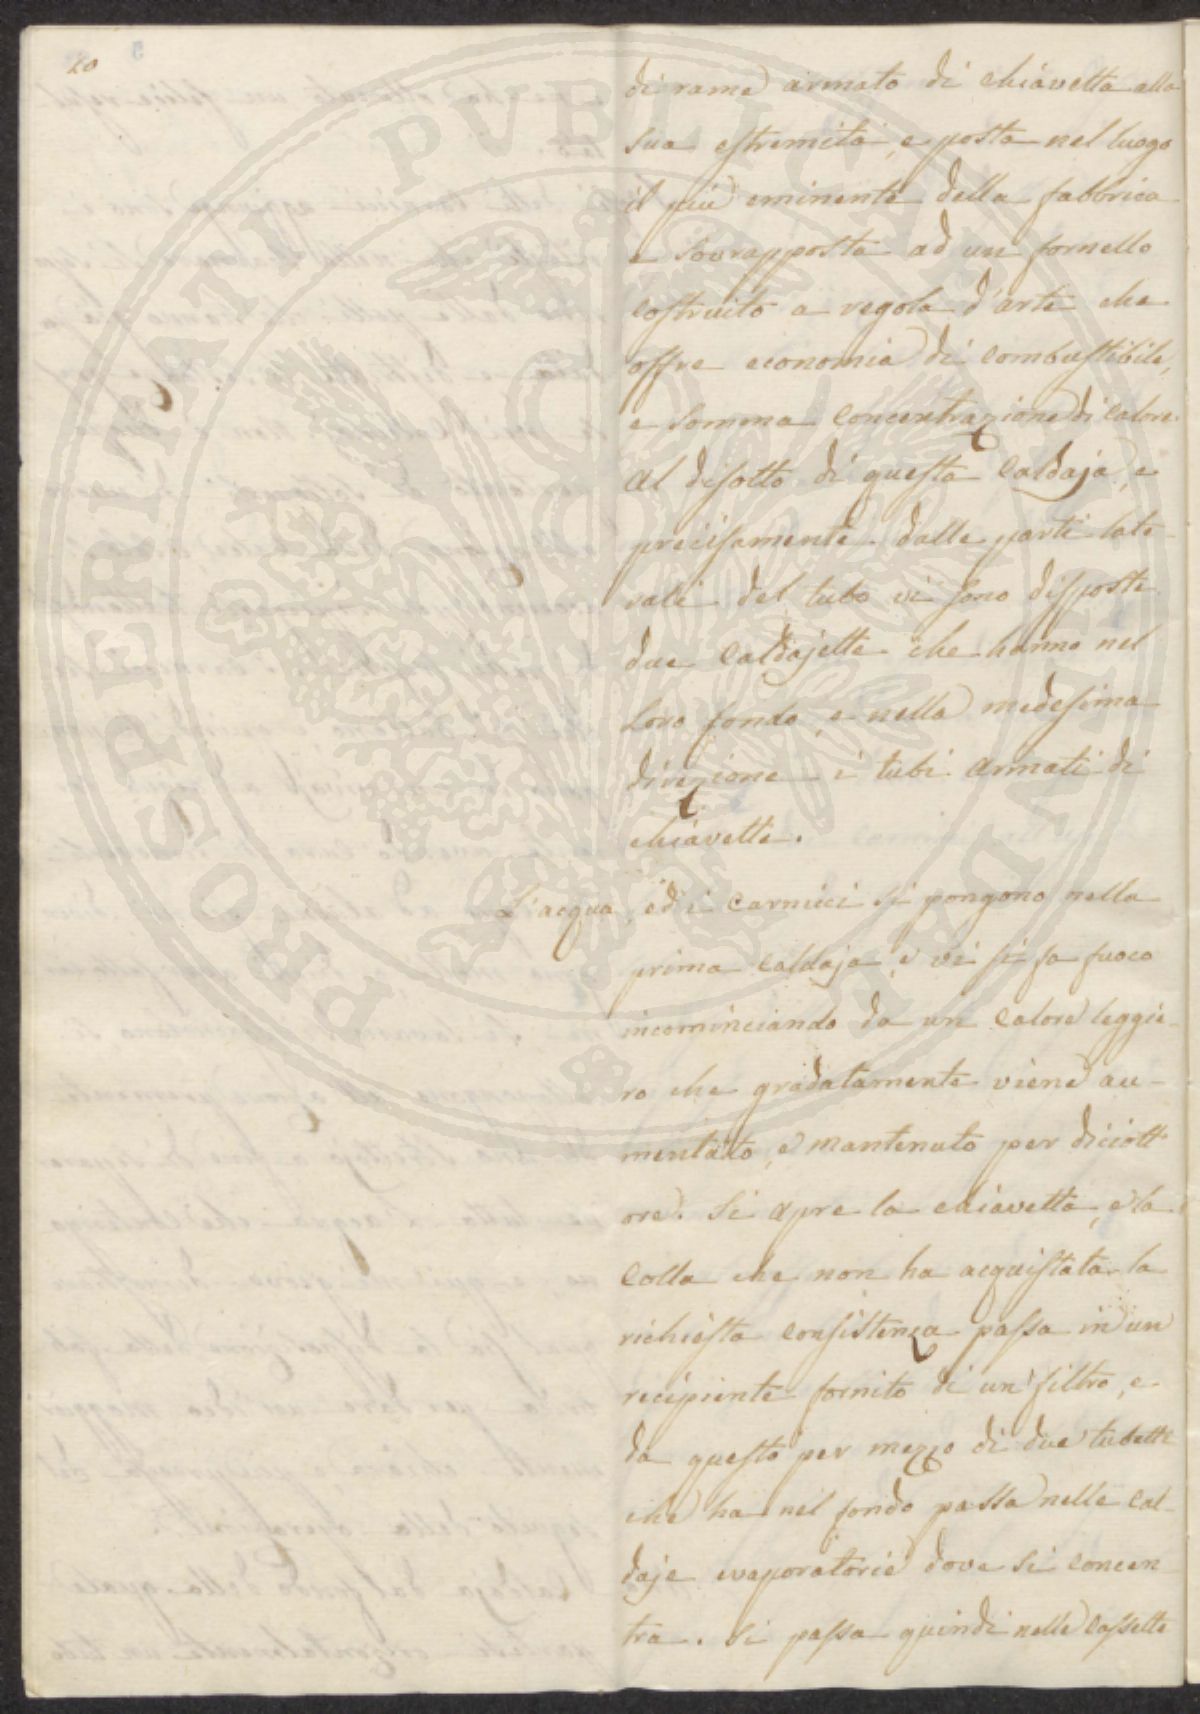 20
di rame armato di chiavetta alla
sua estremità, e posta nel luogo
il più eminente della fabbrica
e sovrapposta ad un fornello
costruito a regola d'arte che
offre economia di combustibile,
e somma concentrazione di calore.
Al disotto di questa Caldaja, e
precisamente dalle parti late-
rali del tubo vi sono disposte
due Caldajette che hanno nel
loro fondo, e nella medesima
direzione i tubi armati di
chiavette.
L'acqua, ed i carnicci si pongono nella
prima caldaja, e vi si fa fuoco
incominciando da un calore leggie-
ro che gradatamente viene au-
mentato, e mantenuto per diciott'
ore. Si apre la chiavetta, e la
Colla che non ha acquistata la
richiesta consistenza passa in un
recipiente fornito di un filtro, e
da questo per mezzo di due tubetti
che ha nel fondo passa nelle Cal-
daje evaporatorie dove si concen-
tra. Si passa quindi nelle Cassette
PROSPERITATI PVBLICAE